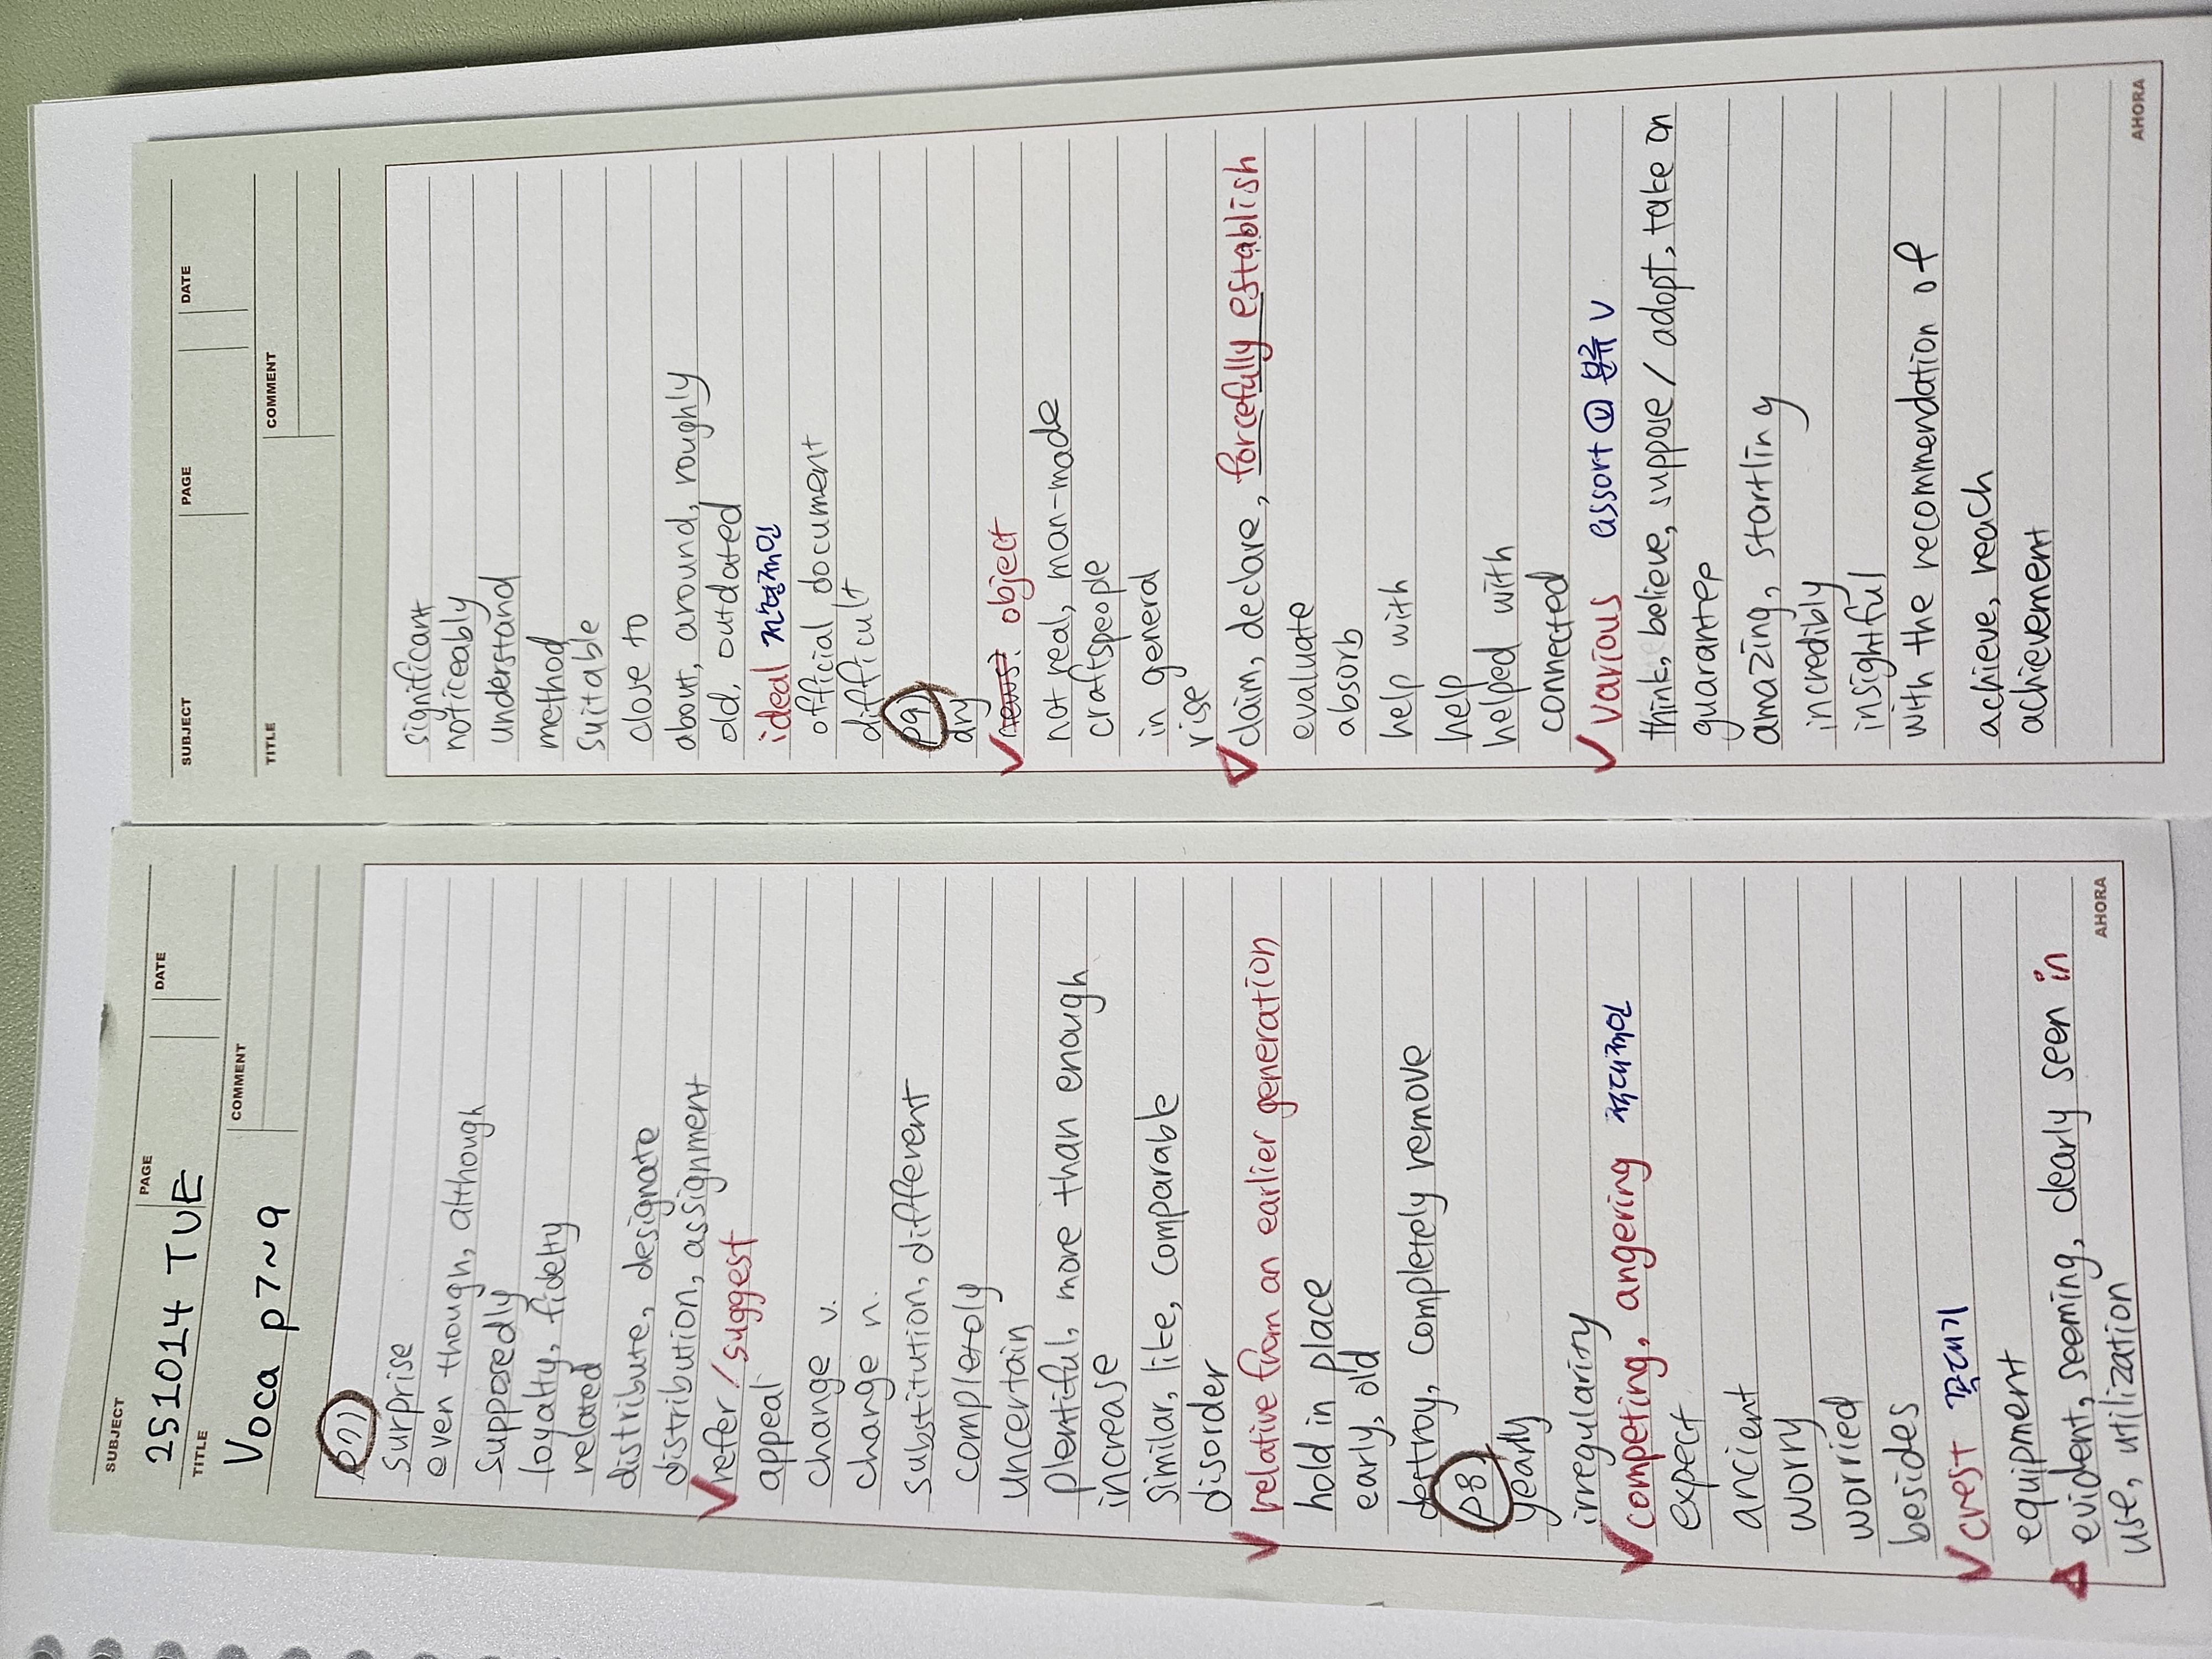 SUBJECT
PAGE
DATE
251014 TUE
TITLE
COMMENT
Voca p7~9
P7)
surprise
even though, although
supposedly
loyalty, fidelty
related
distribute, designate
distribution, assignment
✓ refer / suggest
appeal
change v.
change n.
substitution, different
completoly
uncertain
plentiful, more than enough
increase
similar, like, comparable
disorder
✓ relative from an earlier generation
hold in place
early, old
destroy, completely remove
P8)
yearly
irregularity
✓ competing, angering 적대적인
expect
ancient
worry
worried
besides
✓ crest 꼭대기
equipment
△ evident, seeming, clearly seen in
use, utilization
AHORA
SUBJECT
PAGE
DATE
TITLE
COMMENT
significant
noticeably
understand
method
suitable
close to
about, around, roughly
old, outdated
ideal 전형적인
official document
difficult
P9)
dry
✓ object
not real, man-made
craftspeople
in general
rise
▽ claim, declare, forcefully establish
evaluate
absorb
help with
help
helped with
connected
✓ various assort ⓥ 분류 v
think, believe, suppose / adopt, take on
guarantee
amazing, startling
incredibly
insightful
with the recommendation of
achieve, reach
achievement
AHORA